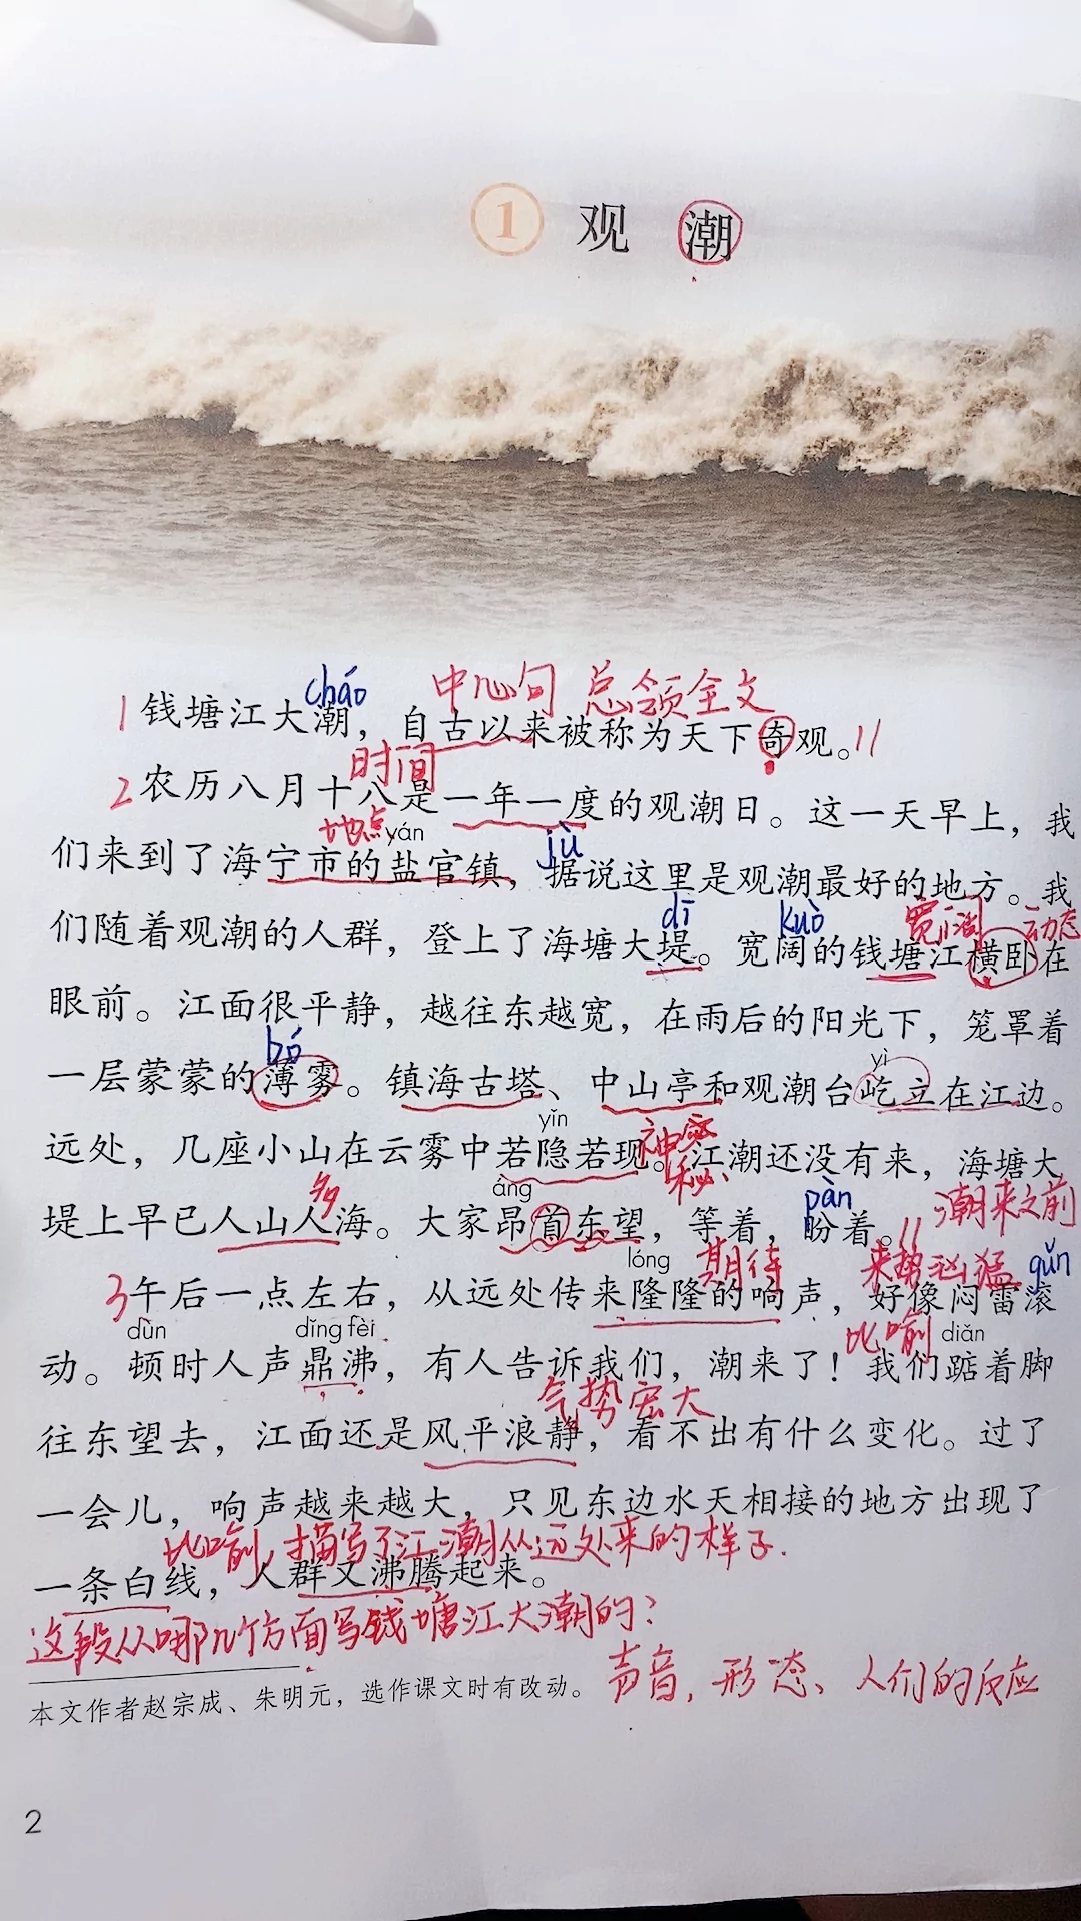 1 观 潮
cháo 中心句 总领全文
1 钱塘江大潮，自古以来被称为天下奇观。//
时间
2 农历八月十八是一年一度的观潮日。这一天早上，我
地点 yán jù
们来到了海宁市的盐官镇，据说这里是观潮最好的地方。我
dī kuò 宽阔 动态
们随着观潮的人群，登上了海塘大堤。宽阔的钱塘江横卧在
眼前。江面很平静，越往东越宽，在雨后的阳光下，笼罩着
bó yì
一层蒙蒙的薄雾。镇海古塔、中山亭和观潮台屹立在江边。
yǐn 神密秘
远处，几座小山在云雾中若隐若现。江潮还没有来，海塘大
多 áng pàn 潮来之前
堤上早已人山人海。大家昂首东望，等着，盼着。//
lóng 期待 来势汹猛 gǔn
3 午后一点左右，从远处传来隆隆的响声，好像闷雷滚
dùn dǐng fèi 比喻 diǎn
动。顿时人声鼎沸，有人告诉我们，潮来了！我们踮着脚
气势宏大
往东望去，江面还是风平浪静，看不出有什么变化。过了
一会儿，响声越来越大，只见东边水天相接的地方出现了
比喻，描写了江潮从远处来的样子.
一条白线，人群又沸腾起来。
这段从哪几个方面写钱塘江大潮的？
声音，形态、人们的反应
本文作者赵宗成、朱明元，选作课文时有改动。
2